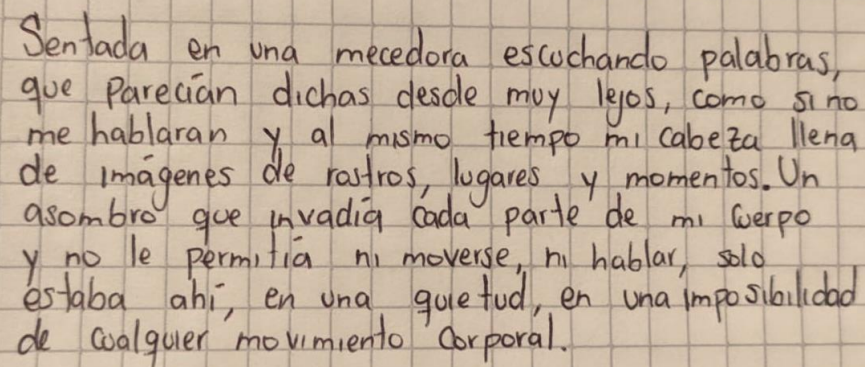 Sentada en una mecedora escuchando palabras,
que parecían dichas desde muy lejos, como si no
me hablaran y al mismo tiempo mi cabeza llena
de imágenes de rastros, lugares y momentos. Un
asombro que invadía cada parte de mi cuerpo
y no le permitía ni moverse, ni hablar, solo
estaba ahí, en una quietud, en una imposibilidad
de cualquier movimiento corporal.